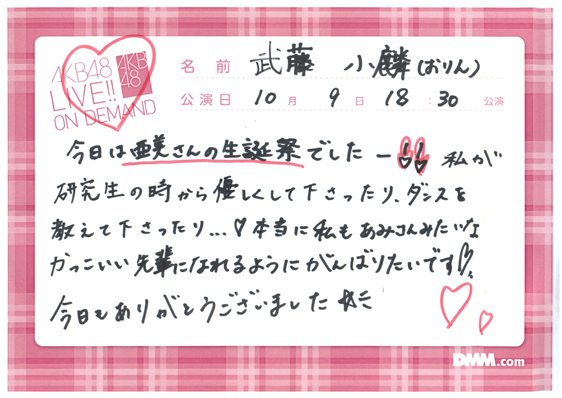 AKB48
LIVE!!
ON DEMAND
AKB
48
名前 武藤 小麟(おりん)
公演日 10月 9日 18:30 公演
今日は亜美さんの生誕祭でしたー!! 私が
研究生の時から優しくして下さったり、ダンスを
教えて下さったり...♡本当に私もあみさんみたいな
かっこいい先輩になれるようにがんばりたいです!!
今日もありがとうございました
DMM.com